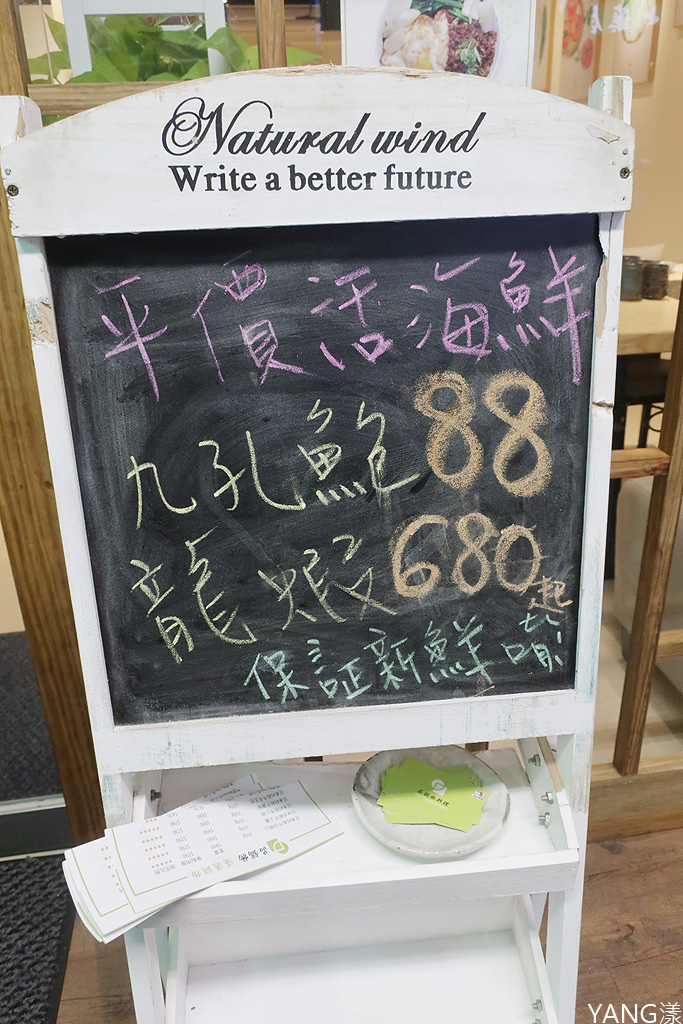 Natural wind
Write a better future
平價活海鮮
九孔鮑88
龍蝦680起
保証新鮮唷
品鍋物
YANG漾